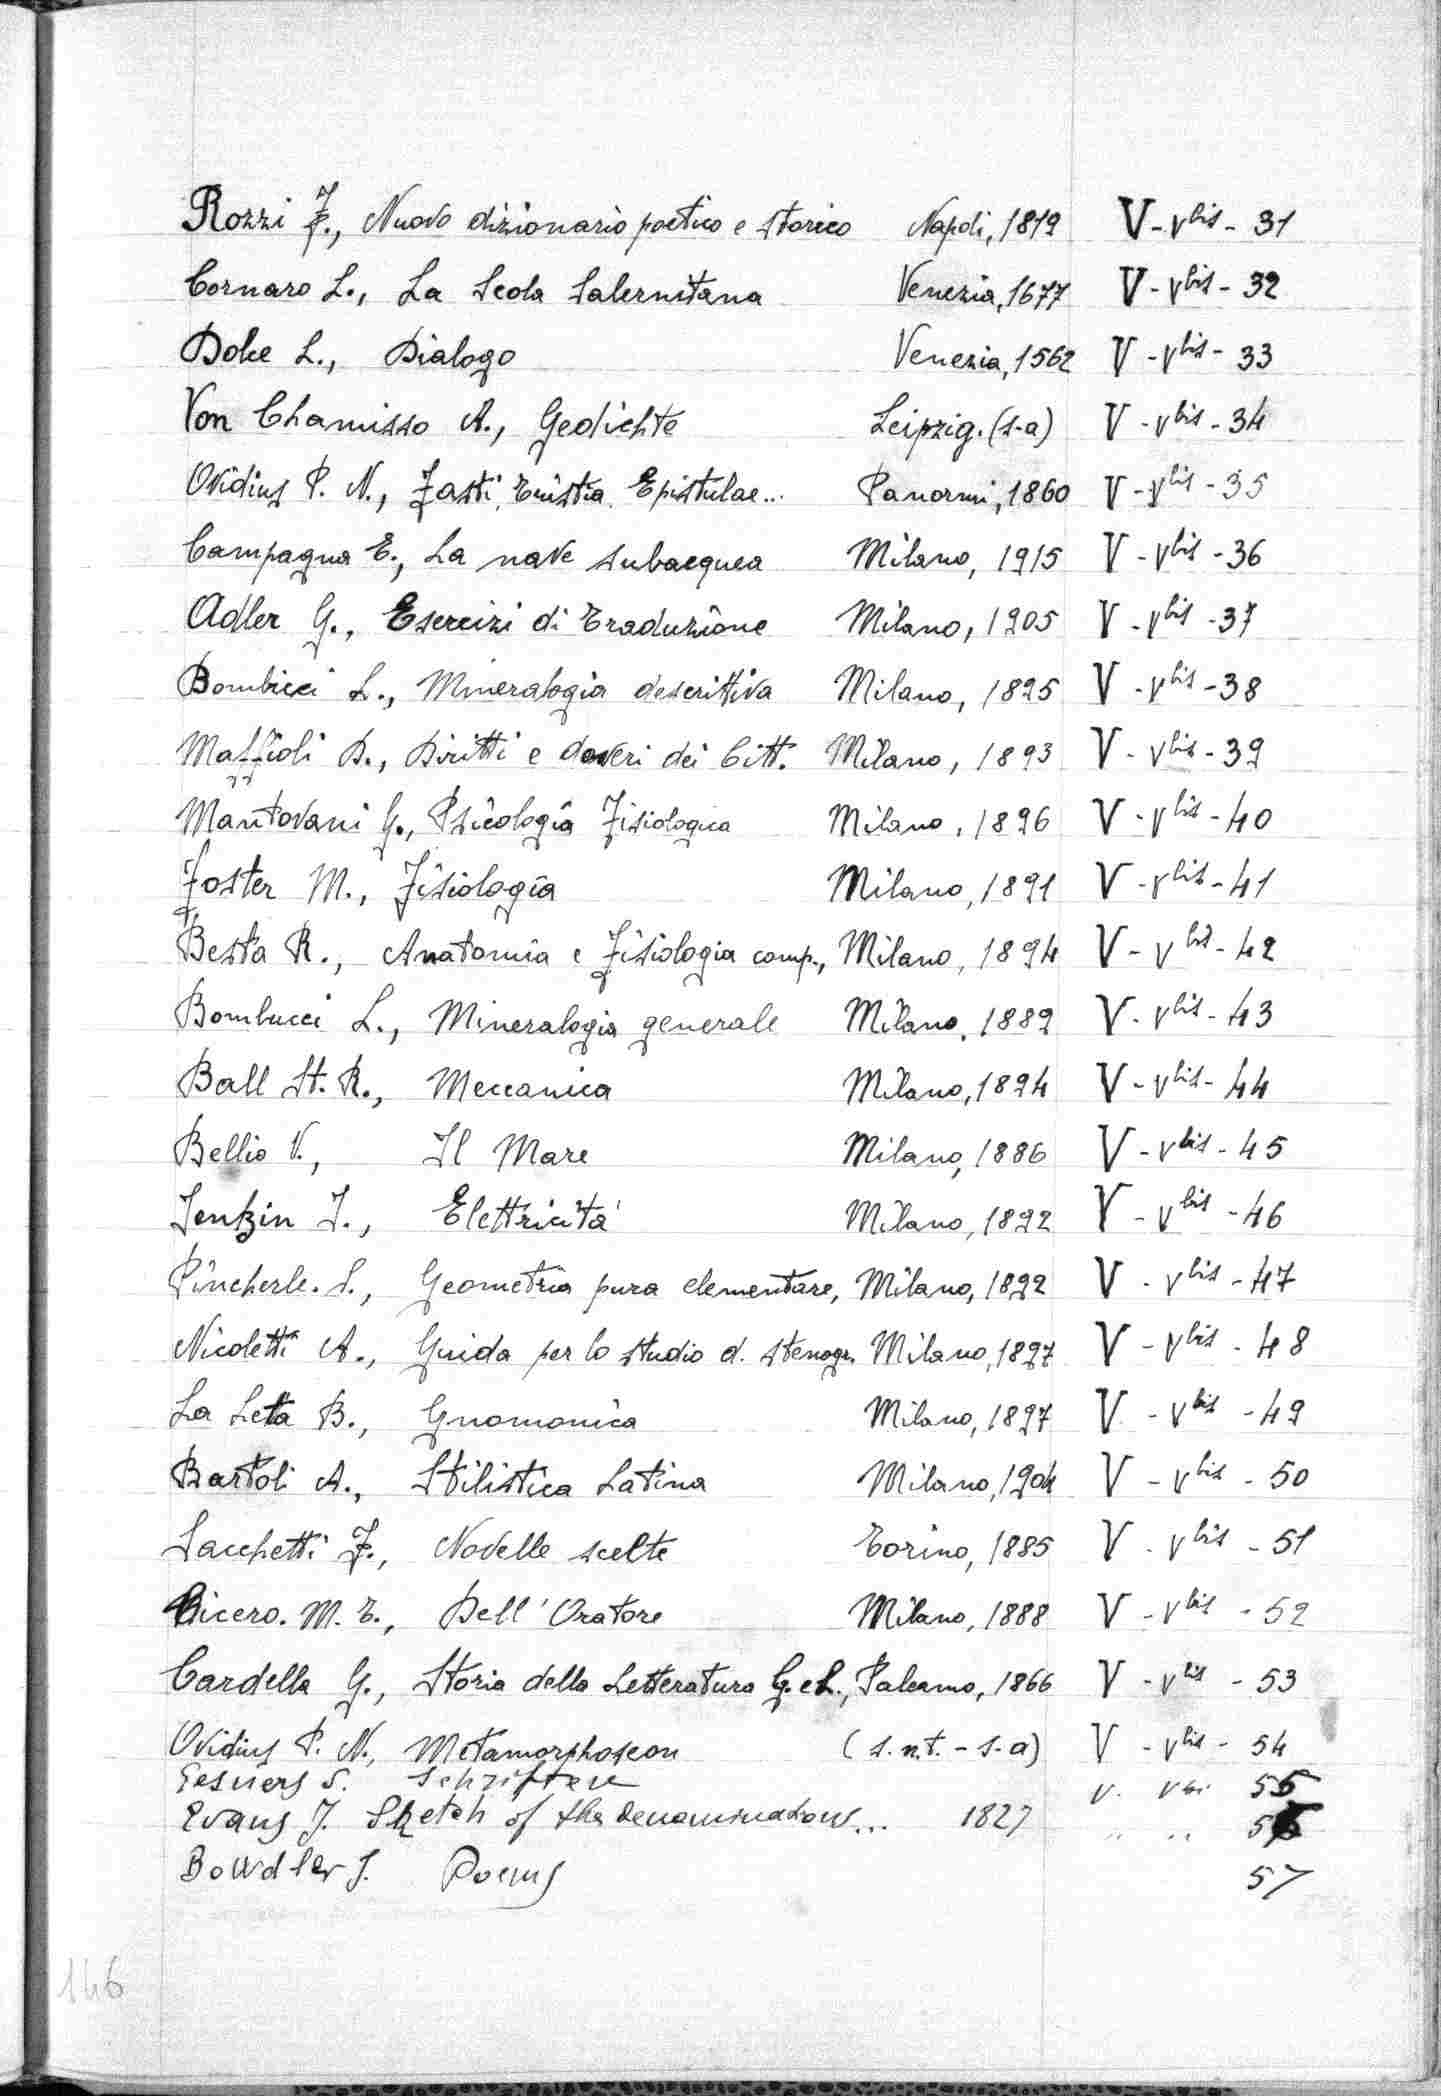 Rozzi F., Nuovo dizionario poetico e storico Napoli, 1819 V - Vbis - 31
Cornaro L., La Scola Salernitana Venezia, 1677 V - Vbis - 32
Dolce L., Dialogo Venezia, 1562 V - Vbis - 33
Von Chamisso A., Gedichte Leipzig. (s-a) V - Vbis - 34
Ovidius P. N., Fasti, Tristia, Epistulae... Panormi, 1860 V - Vbis - 35
Campagna E., La nave subacquea Milano, 1915 V - Vbis - 36
Adler G., Esercizi di Traduzione Milano, 1905 V - Vbis - 37
Bombicci L., Mineralogia descrittiva Milano, 1895 V - Vbis - 38
Maffioli D., Diritti e doveri dei Citt. Milano, 1893 V - Vbis - 39
Mantovani G., Psicologia Fisiologica Milano, 1896 V - Vbis - 40
Foster M., Fisiologia Milano, 1891 V - Vbis - 41
Besta R., Anatomia e Fisiologia comp., Milano, 1894 V - Vbis - 42
Bombucci L., Mineralogia generale Milano, 1889 V - Vbis - 43
Ball St. R., Meccanica Milano, 1894 V - Vbis - 44
Bellio V., Il Mare Milano, 1886 V - Vbis - 45
Jenkin J., Elettricità Milano, 1892 V - Vbis - 46
Pincherle. S., Geometria pura elementare, Milano, 1892 V - Vbis - 47
Nicoletti A., Guida per lo studio d. stenogr. Milano, 1897 V - Vbis - 48
La Leta B., Gnomonica Milano, 1897 V - Vbis - 49
Bartoli A., Stilistica Latina Milano, 1904 V - Vbis - 50
Sacchetti F., Novelle scelte Torino, 1885 V - Vbis - 51
Cicero. M. T., Dell'Oratore Milano, 1888 V - Vbis - 52
Cardella G., Storia della Letteratura G. e L., Palermo, 1866 V - Vbis - 53
Ovidius P. N., Metamorphoseon (s.n.t. - s-a) V - Vbis - 54
Gesners S. Schriften V. Vbi 55
Evans J. Sketch of the denominations... 1827 " " 56
Bowdler J. Poems 57
146